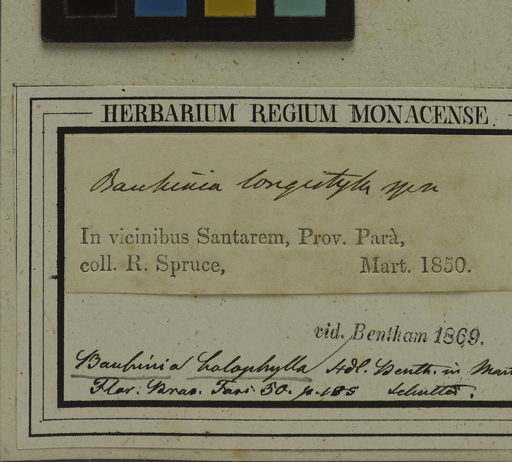 HERBARIUM REGIUM MONACENSE.
Bauhinia longistyla
In vicinibus Santarem, Prov. Parà,
coll. R. Spruce, Mart. 1850.
vid. Bentham 1869.
Bauhinia holophylla Stdl. Benth. in Mart
Flor. Bras. Fasc. 50. p. 185